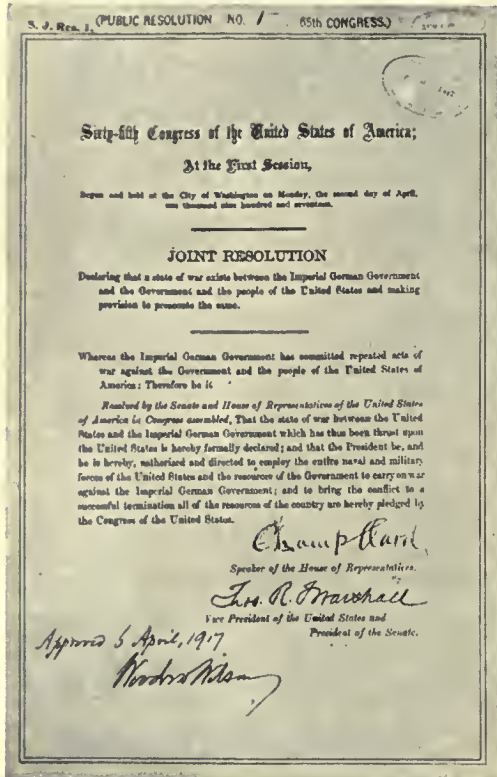 S. J. Res. 1, (PUBLIC RESOLUTION NO. 1 65TH CONGRESS.)
Sixty-fifth Congress of the United States of America;
At the First Session,
Begun and held at the City of Washington on Monday, the second day of April,
one thousand nine hundred and seventeen.
JOINT RESOLUTION
Declaring that a state of war exists between the Imperial German Government
and the Government and the people of the United States and making
provision to prosecute the same.
Whereas the Imperial German Government has committed repeated acts of
war against the Government and the people of the United States of
America: Therefore be it
Resolved by the Senate and House of Representatives of the United States
of America in Congress assembled, That the state of war between the United
States and the Imperial German Government which has thus been thrust upon
the United States is hereby formally declared; and that the President be, and
he is hereby, authorized and directed to employ the entire naval and military
forces of the United States and the resources of the Government to carry on war
against the Imperial German Government; and to bring the conflict to a
successful termination all of the resources of the country are hereby pledged by
the Congress of the United States.
Champ Clark
Speaker of the House of Representatives.
Thos. R. Marshall
Vice President of the United States and
President of the Senate.
Approved 6 April, 1917
Woodrow Wilson